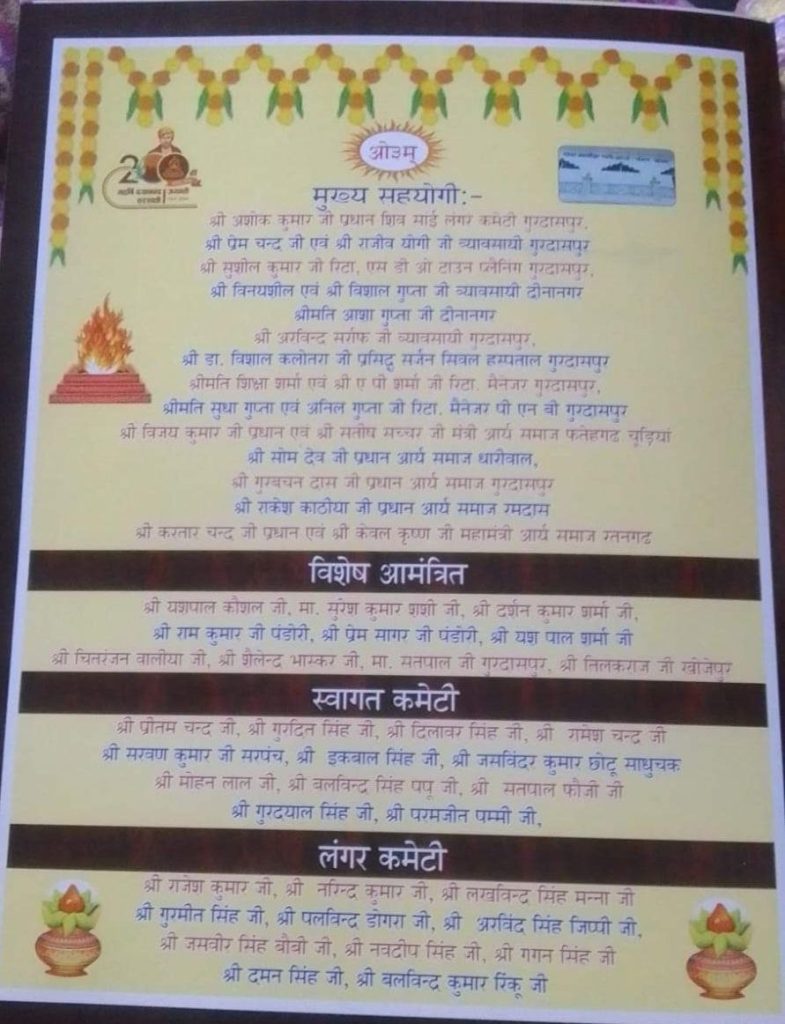 ओ३म्
200
महर्षि दयानन्द सरस्वती
जयन्ती
मुख्य सहयोगी:-
श्री अशोक कुमार जी प्रधान शिव माई लंगर कमेटी गुरदासपुर,
श्री प्रेम चन्द जी एवं श्री राजीव योगी जी व्यावसायी गुरदासपुर
श्री सुशील कुमार जी रिटा. एस डी ओ टाउन प्लैनिंग गुरदासपुर,
श्री विनयशील एवं श्री विशाल गुप्ता जी व्यावसायी दीनानगर
श्रीमति आशा गुप्ता जी दीनानगर
श्री अरविन्द सर्राफ जी व्यावसायी गुरदासपुर,
श्री डा. विशाल कलोतरा जी प्रसिद्ध सर्जन सिवल हस्पताल गुरदासपुर
श्रीमति शिक्षा शर्मा एवं श्री ए पी शर्मा जी रिटा. मैनेजर गुरदासपुर,
श्रीमति सुधा गुप्ता एवं अनिल गुप्ता जी रिटा. मैनेजर पी एन बी गुरदासपुर
श्री विजय कुमार जी प्रधान एवं श्री सतीष सच्चर जी मंत्री आर्य समाज फतेहगढ चुड़ियां
श्री सोम देव जी प्रधान आर्य समाज धारीवाल,
श्री गुरबचन दास जी प्रधान आर्य समाज गुरदासपुर
श्री राकेश काठीया जी प्रधान आर्य समाज रमदास
श्री करतार चन्द जी प्रधान एवं श्री केवल कृष्ण जी महामंत्री आर्य समाज रतनगढ
विशेष आमंत्रित
श्री यशपाल कौशल जी, मा. सुरेश कुमार शशी जी, श्री दर्शन कुमार शर्मा जी,
श्री राम कुमार जी पंडोरी, श्री प्रेम सागर जी पंडोरी, श्री यश पाल शर्मा जी
श्री चितरंजन वालीया जी, श्री शैलेन्द्र भास्कर जी, मा. सतपाल जी गुरदासपुर, श्री तिलकराज जी खोजेपुर
स्वागत कमेटी
श्री प्रीतम चन्द जी, श्री गुरदित सिंह जी, श्री दिलावर सिंह जी, श्री रमेश चन्द जी
श्री सरवण कुमार जी सरपंच, श्री इकबाल सिंह जी, श्री जसविंदर कुमार छोटू साधुचक
श्री मोहन लाल जी, श्री बलविन्द्र सिंह पपू जी, श्री सतपाल फौजी जी
श्री गुरदयाल सिंह जी, श्री परमजीत पम्मी जी,
लंगर कमेटी
श्री राजेश कुमार जी, श्री नरिन्द्र कुमार जी, श्री लखविन्द्र सिंह मन्ना जी
श्री गुरमीत सिंह जी, श्री पलविन्द्र डोगरा जी, श्री अरविंद सिंह जिप्पी जी,
श्री जसवीर सिंह बौबी जी, श्री नवदीप सिंह जी, श्री गगन सिंह जी
श्री दमन सिंह जी, श्री बलविन्द्र कुमार रिंकू जी